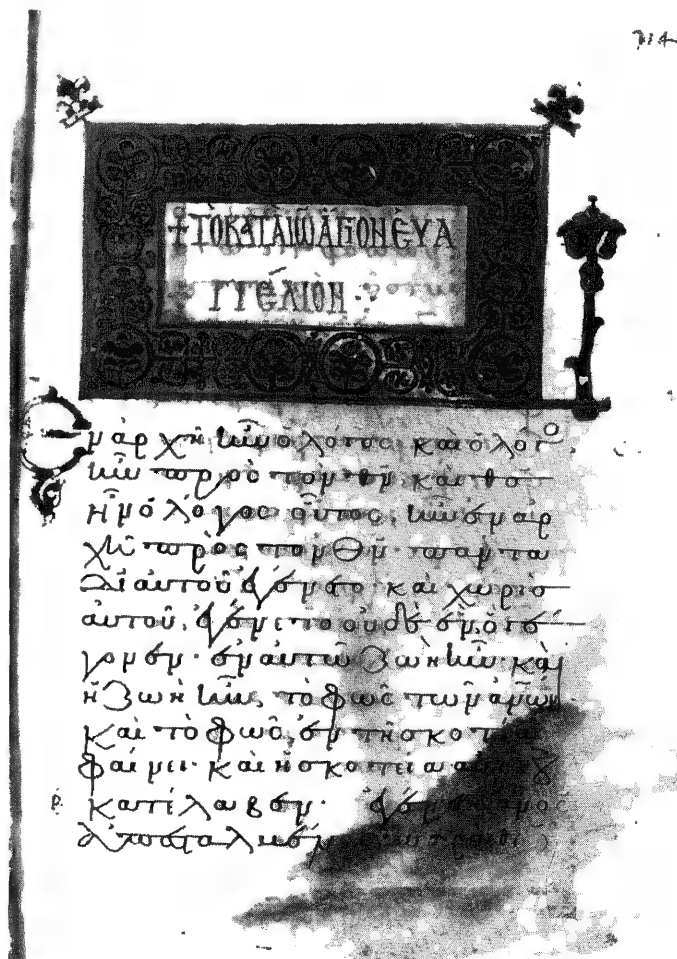 214
+ ΤΟ ΚΑΤΑ ΙΩ ΑΓΙΟΝ ΕΥΑ
ΓΓΕΛΙΟΝ
Εν ἀρχῆ ἦν ὁ λόγος· καὶ ὁ λόγ
ἦν πρὸς τὸν θν· καὶ θς
ἦν ὁ λόγος· οὗτος ἦν ἐν ἀρ
χῆ πρὸς τὸν θν· πάντα
δι αὐτοῦ ἐγένετο· καὶ χωρὶσ
αὐτοῦ, ἐγένετο οὐδὲ ἕν, ὃ γέ
γονεν· ἐν αὐτῶ ζωὴ ἦν· καὶ
ἡ ζωὴ ἦν, τὸ φῶς τῶν ἀνῶν
καὶ τὸ φῶς, ἐν τῆ σκοτία
φαίνει· καὶ ἡ σκοτεία αὐτὸ οὐ
κατέλαβεν· ἐγένετο ἄνος
ἀπεσταλμένος